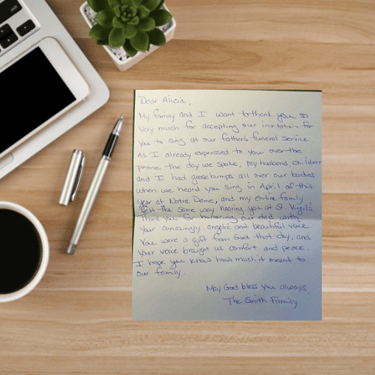 Dear Alicia,
My family and I want to thank you so
very much for accepting our invitation for
you to sing at our father's funeral service.
As I already expressed to you over the
phone the day we spoke, my husband, children
and I had goosebumps all over our bodies
when we heard you sing in April of this
year at Notre Dame, and my entire family
felt the same way hearing you at St. Virgil's
Thank you for honoring our dad with
your amazingly angelic and beautiful voice.
You were a gift from God that day, and
your voice brought us comfort and peace.
I hope you know how much it meant to
our family
May God bless you always
The Smith Family